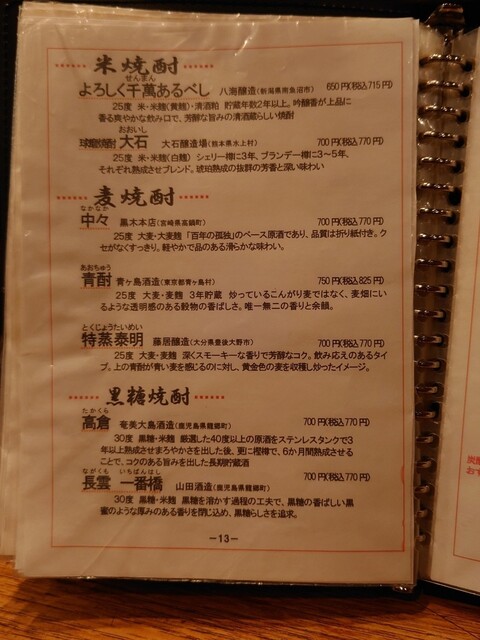 米焼酎
せんまん
よろしく千萬あるべし 八海醸造(新潟県南魚沼市) 650円(税込715円)
25度 米・米麹(黄麹)・清酒粕 貯蔵年数2年以上。吟醸香が上品に
香る爽やかな飲み口で、芳醇な旨みの清酒蔵らしい焼酎
おおいし
球磨焼酎 大石 大石醸造場(熊本県水上村) 700円(税込770円)
25度 米・米麹(白麹) シェリー樽に3年、ブランデー樽に3～5年、
それぞれ熟成させブレンド。琥珀熟成の抜群の芳香と深い味わい
麦焼酎
なかなか
中々 黒木本店(宮崎県高鍋町) 700円(税込770円)
25度 大麦・大麦麹 「百年の孤独」のベース原酒であり、品質は折り紙付き。ク
セがなくすっきり。軽やかで品のある滑らかな味わい。
あおちゅう
青酎 青ヶ島酒造(東京都青ヶ島村) 750円(税込825円)
25度 大麦・麦麹 3年貯蔵 炒っているこんがり麦ではなく、麦畑にい
るような透明感のある穀物の香ばしさ。唯一無二の香りと余韻。
とくじょうたいめい
特蒸泰明 藤居醸造(大分県豊後大野市) 700円(税込770円)
25度 大麦・麦麹 深くスモーキーな香りで芳醇なコク。飲み応えのあるタイ
プ。上の青酎が青い麦を感じるのに対し、黄金色の麦を収穫し炒ったイメージ。
黒糖焼酎
たかくら
高倉 奄美大島酒造(鹿児島県龍郷町) 700円(税込770円)
30度 黒糖・米麹 厳選した40度以上の原酒をステンレスタンクで3
年以上熟成させまろやかさを出した後、更に樫樽で、6か月間熟成させる
ことで、コクのある旨みを出した長期貯蔵酒
ながくも いちばんはし
長雲 一番橋 山田酒造(鹿児島県龍郷町) 700円(税込770円)
30度 黒糖・米麹 黒糖を溶かす過程の工夫で、黒糖の香ばしい黒
蜜のような厚みのある香りを閉じ込め、黒糖らしさを追求。
－13－